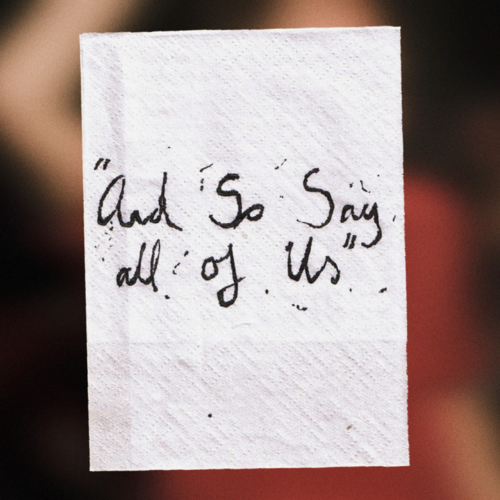 "And So Say
all of Us"